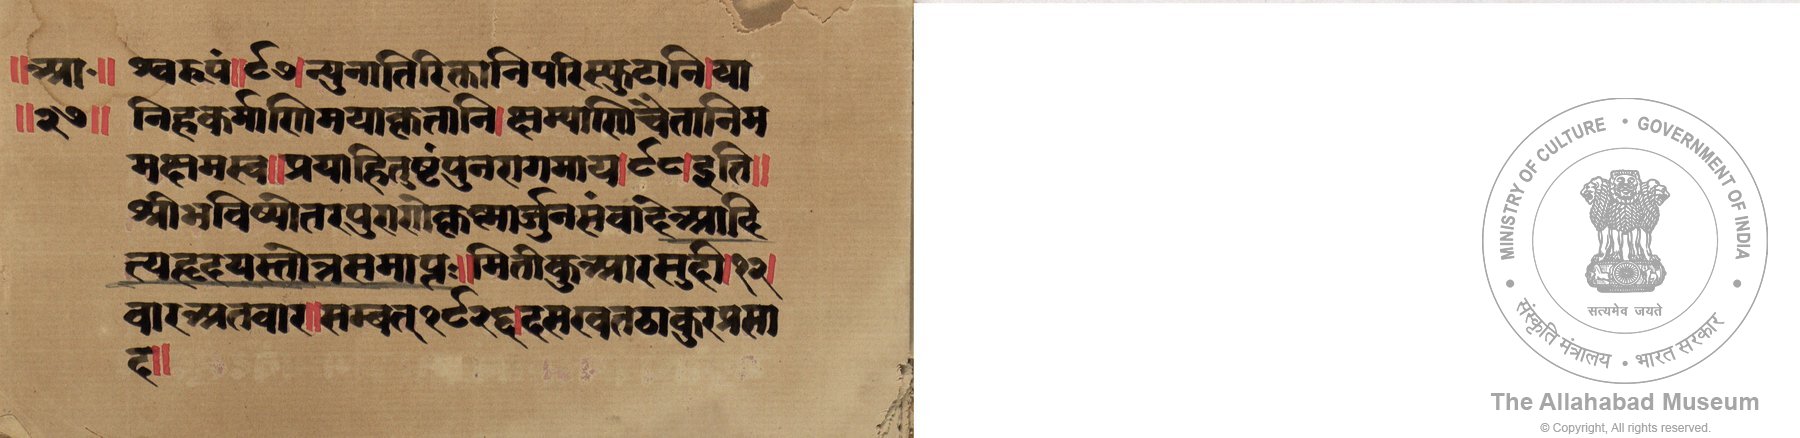 ॥आ॰॥ श्वरूपं॥९७।न्युनातिरिक्तानिपरिस्फुटानि।या
॥२७॥ निहकर्माणिमयाकृतानि।क्षम्याणिचैतानिम
मक्षमस्व॥प्रयाहितुष्टंपुनरागमाय।९८।इति॥
श्रीभविष्योतरपुराणेकृष्णार्जुनसंवादेआदि
त्यहृदयस्तोत्रसमाप्तः॥मितीकुआरसुदी।१२।
वारअतवार॥सम्बत्१९२६।दसखतठाकुरप्रसा
द॥
MINISTRY OF CULTURE • GOVERNMENT OF INDIA
सत्यमेव जयते
संस्कृति मंत्रालय • भारत सरकार
The Allahabad Museum
© Copyright, All rights reserved.